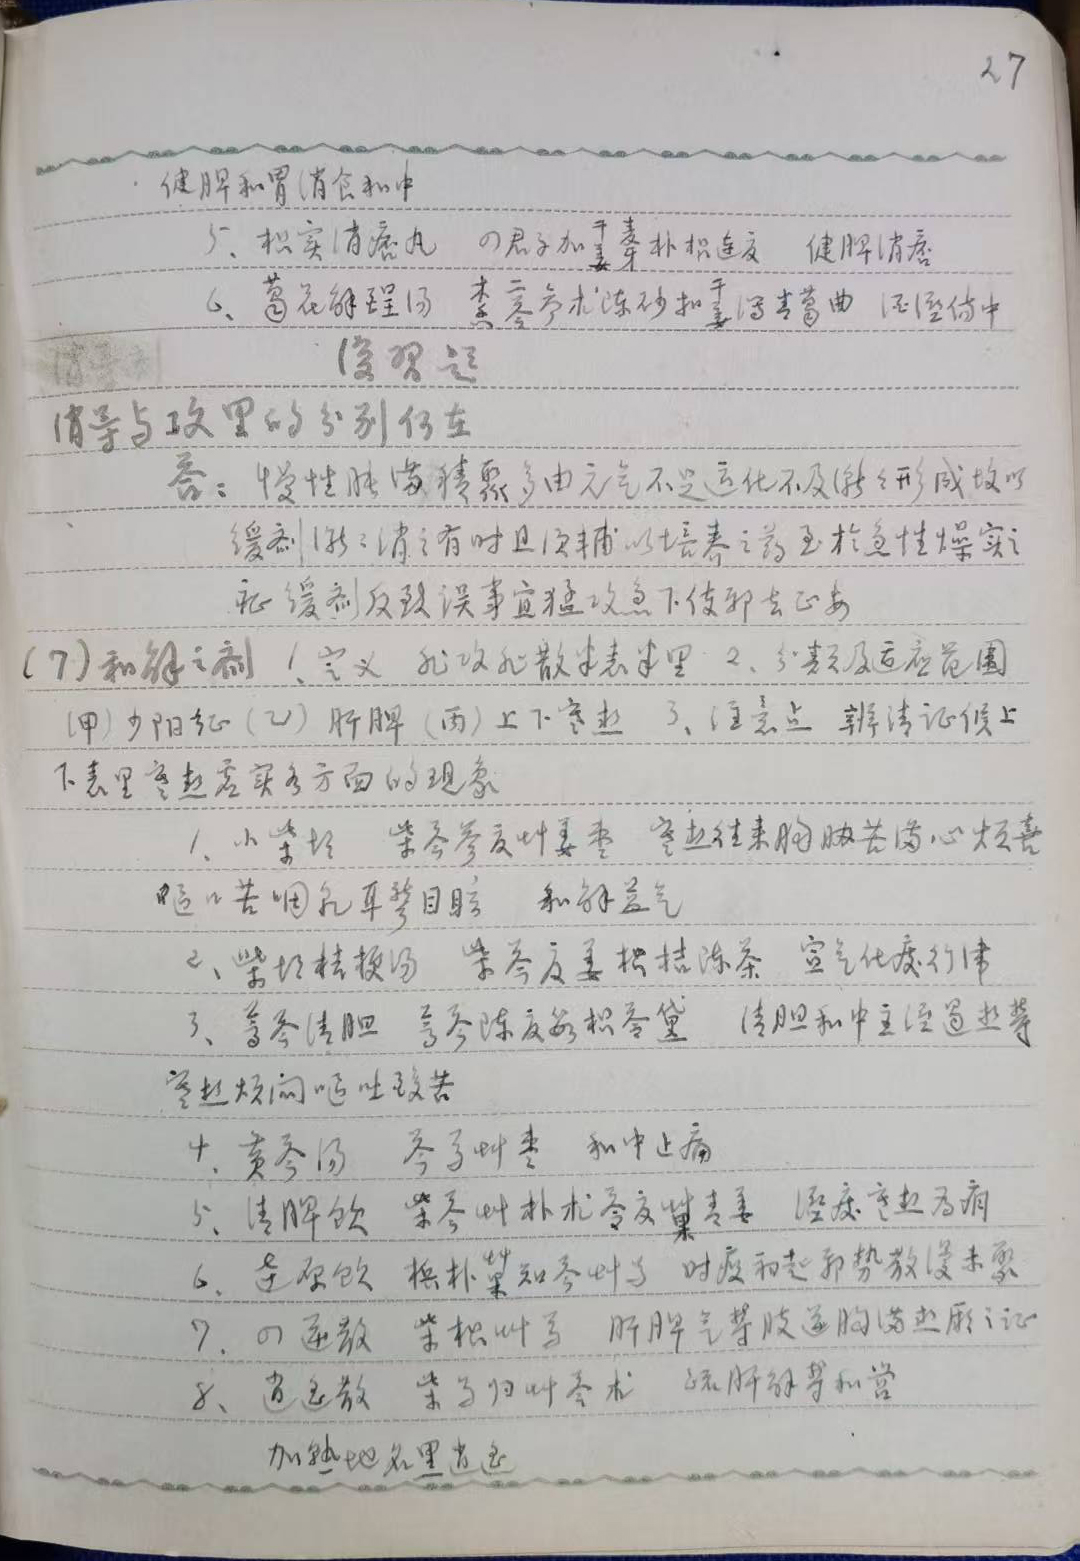 27
健脾和胃消食和中
5、枳实消痞丸 四君子加干姜麦芽朴枳连夏 健脾消痞
6、葛花解酲汤 术陈砂扣干姜泻青葛曲 酒湿伤中
复习题
消导与攻里的分别何在
答：慢性胀满积聚多由元气不足运化不及渐々形成故以
缓剂渐々消之有时且须辅以培养之药至于急性燥实之
症缓剂反致误事宜猛攻急下使邪去正安
(7)和解之剂 1、定义 非攻非散半表半里 2、分类及适应范围
(甲)少阳症(乙)肝脾(丙)上下寒热 3、注意点 辨清证候上
下表里寒热虚实各方面的现象
1、小柴胡 柴芩参夏艸姜枣 寒热往来胸胁苦满心烦喜
呕口苦咽乾耳聋目眩 和解益气
2、柴胡桔梗汤 柴芩夏姜枳桔陈茶 宣气化痰行津
3、蒿芩清胆 蒿芩陈夏 枳苓黛 清胆和中主湿遏热郁
寒热烦闷呕吐酸苦
4、黄芩汤 芩芍艸枣 和中止痛
5、清脾饮 柴芩艸朴术苓夏菓青姜 湿痰寒热为病
6、达原饮 槟朴菓知芩艸芍 时疫初起邪势散漫未聚
7、四逆散 柴枳艸芍 肝脾气郁肢逆胸满热厥之证
8、逍遥散 柴芍归艸苓术 疏肝解郁和营
加熟地名黑逍遥